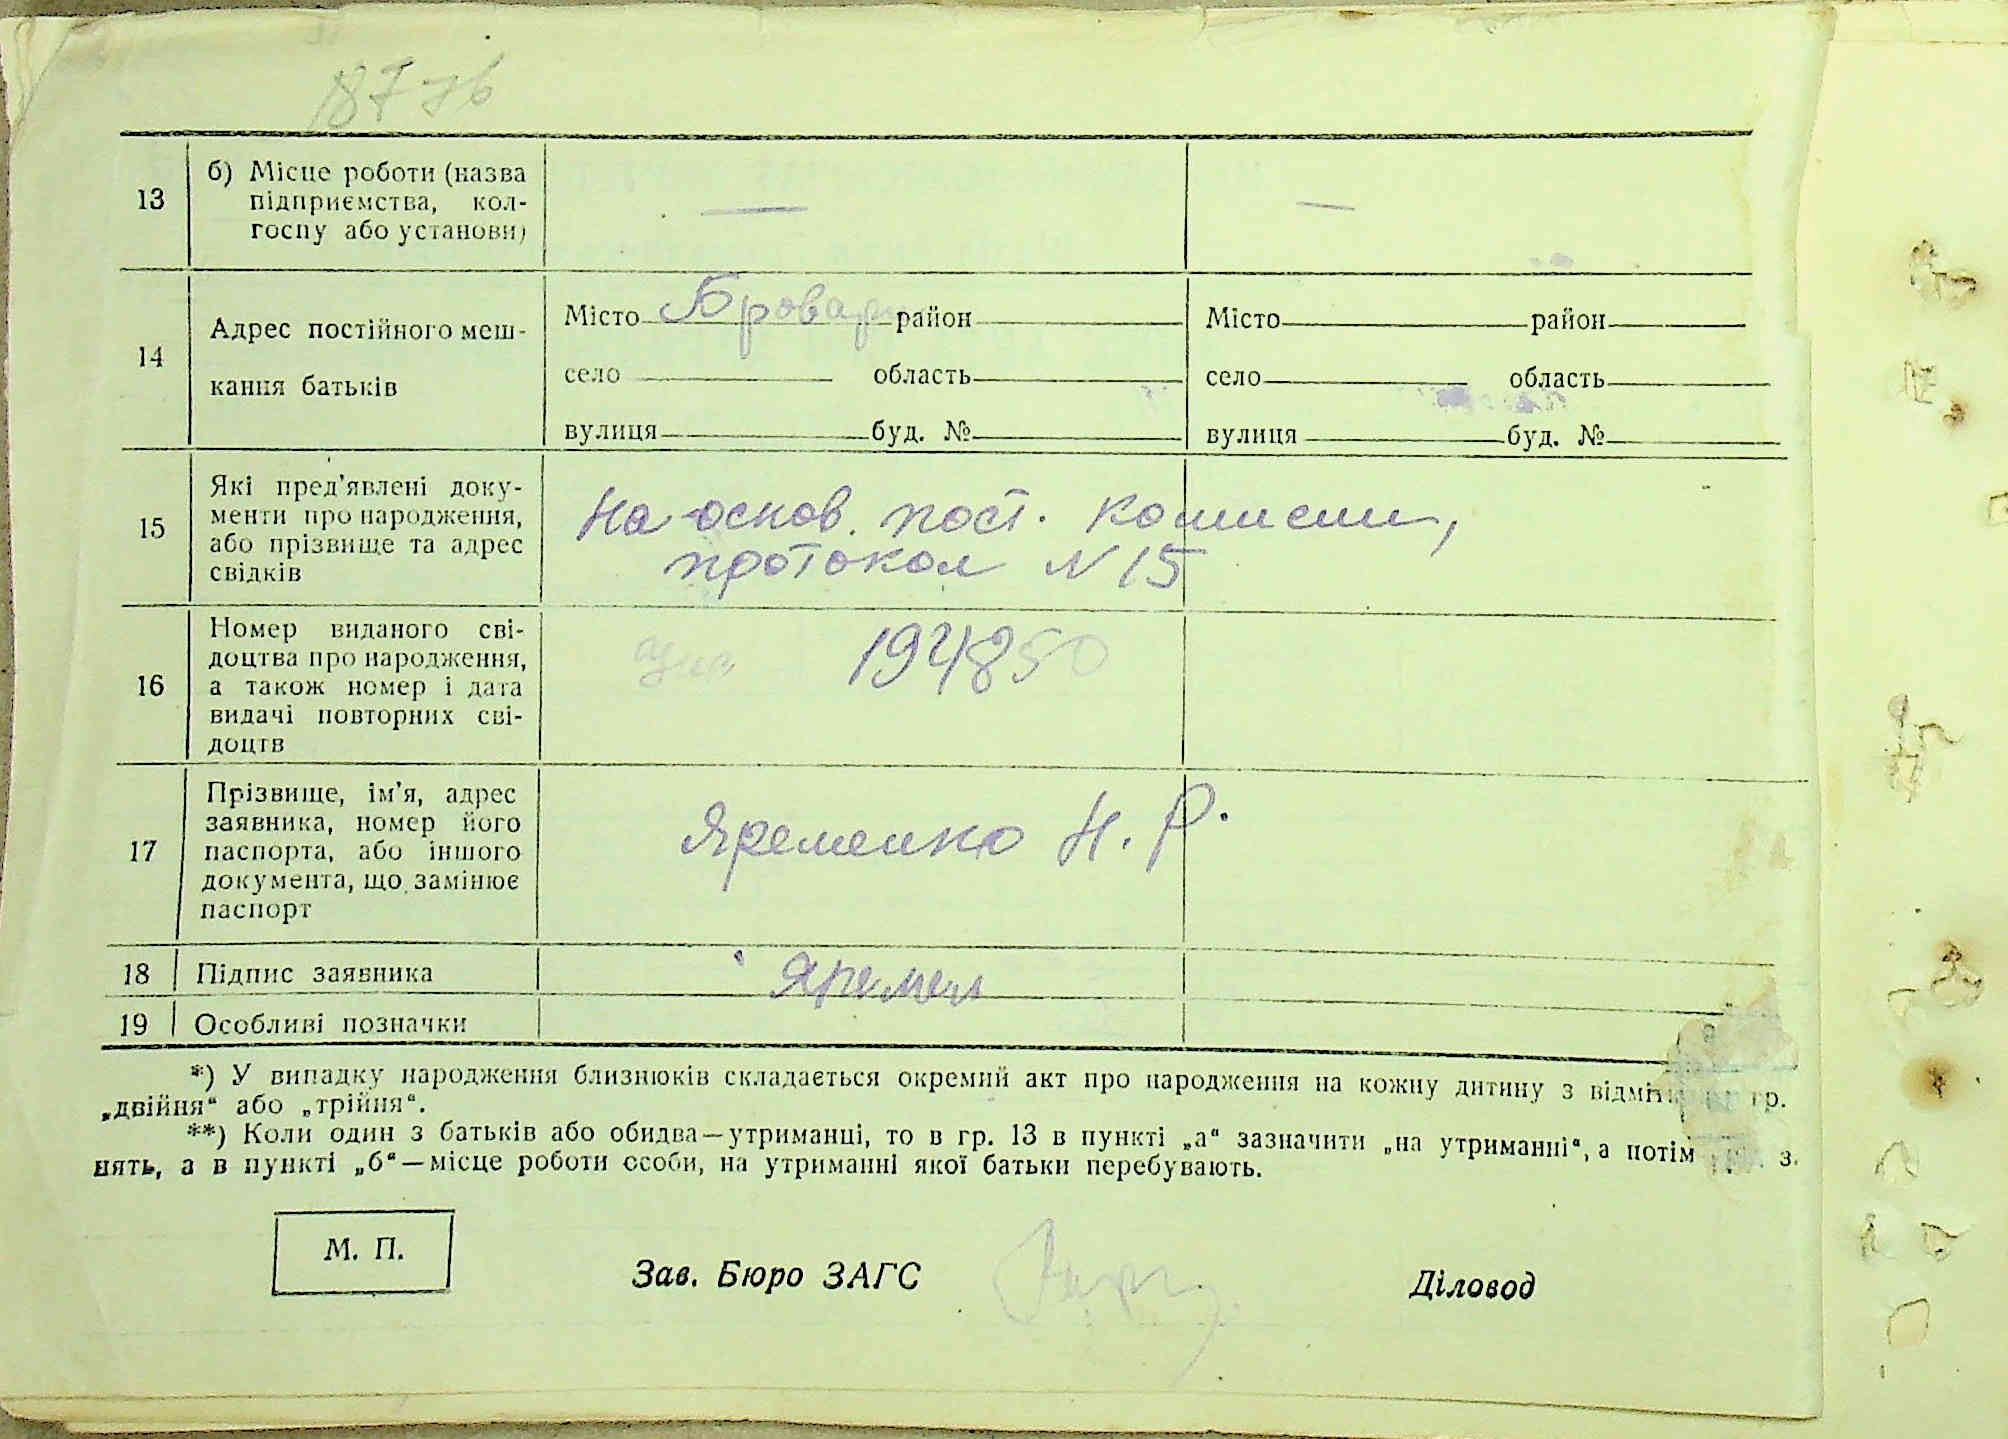 13 б) Місце роботи (назва
підприємства, кол-
госпу або установи)
— —
14 Адрес постійного меш-
кання батьків
Місто Бровари район Місто район
село область село область
вулиця буд. № вулиця буд. №
15 Які пред'явлені доку-
менти про народження,
або прізвище та адрес
свідків
На основ. пост. комисии,
протокол N 15
16 Номер виданого сві-
доцтва про народження,
а також номер і дата
видачі повторних сві-
доцтв
194850
17 Прізвище, ім'я, адрес
заявника, номер його
паспорта, або іншого
документа, що замінює
паспорт
Яременко Н. Р.
18 Підпис заявника Яремен
19 Особливі позначки
*) У випадку народження близнюків складається окремий акт про народження на кожну дитину з гр.
„двійня" або „трійня".
**) Коли один з батьків або обидва—утриманці, то в гр. 13 в пункті „а" зазначити „на утриманні", а потім з.
нять, а в пункті „б"—місце роботи особи, на утриманні якої батьки перебувають.
М. П.
Зав. Бюро ЗАГС Діловод